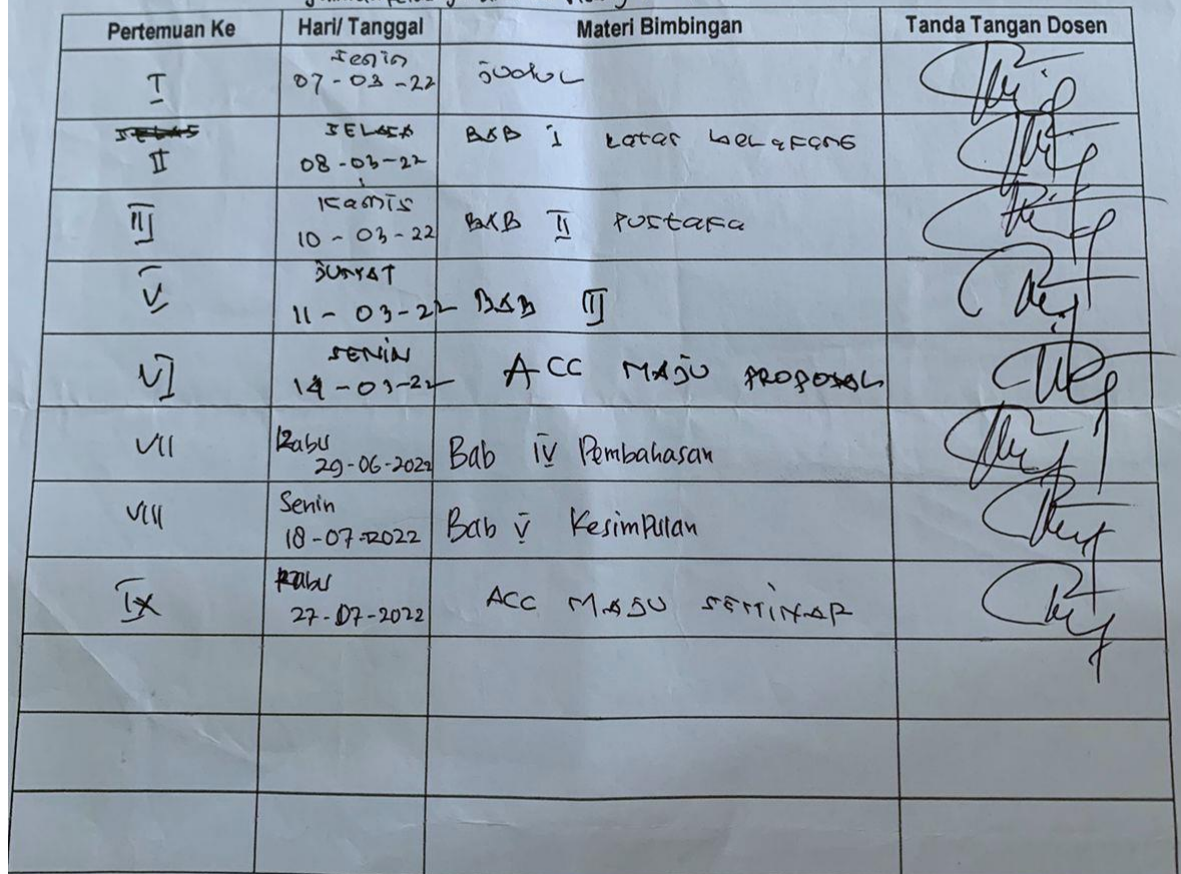 Pertemuan Ke Hari/ Tanggal Materi Bimbingan Tanda Tangan Dosen
I Senin 07-03-22 Judul
II SELASA 08-03-22 BAB I Latar belakang
III Kamis 10-03-22 BAB II Pustaka
V JUMAT 11-03-22 BAB III
VI SENIN 14-03-22 ACC MAJU PROPOSAL
VII Rabu 29-06-2022 Bab IV Pembahasan
VIII Senin 18-07-2022 Bab V Kesimpulan
IX Rabu 27-07-2022 ACC MAJU SEMINAR